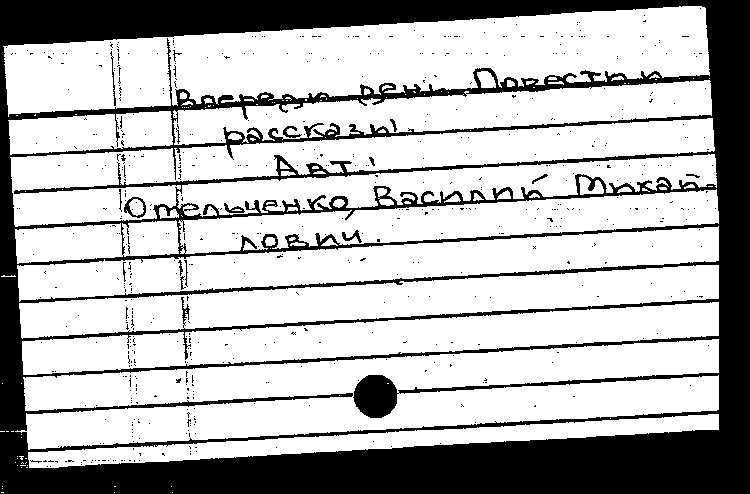 Впереди день. Повести и
рассказы.
Авт.:
Отельченко, Василий Михай-
лович.